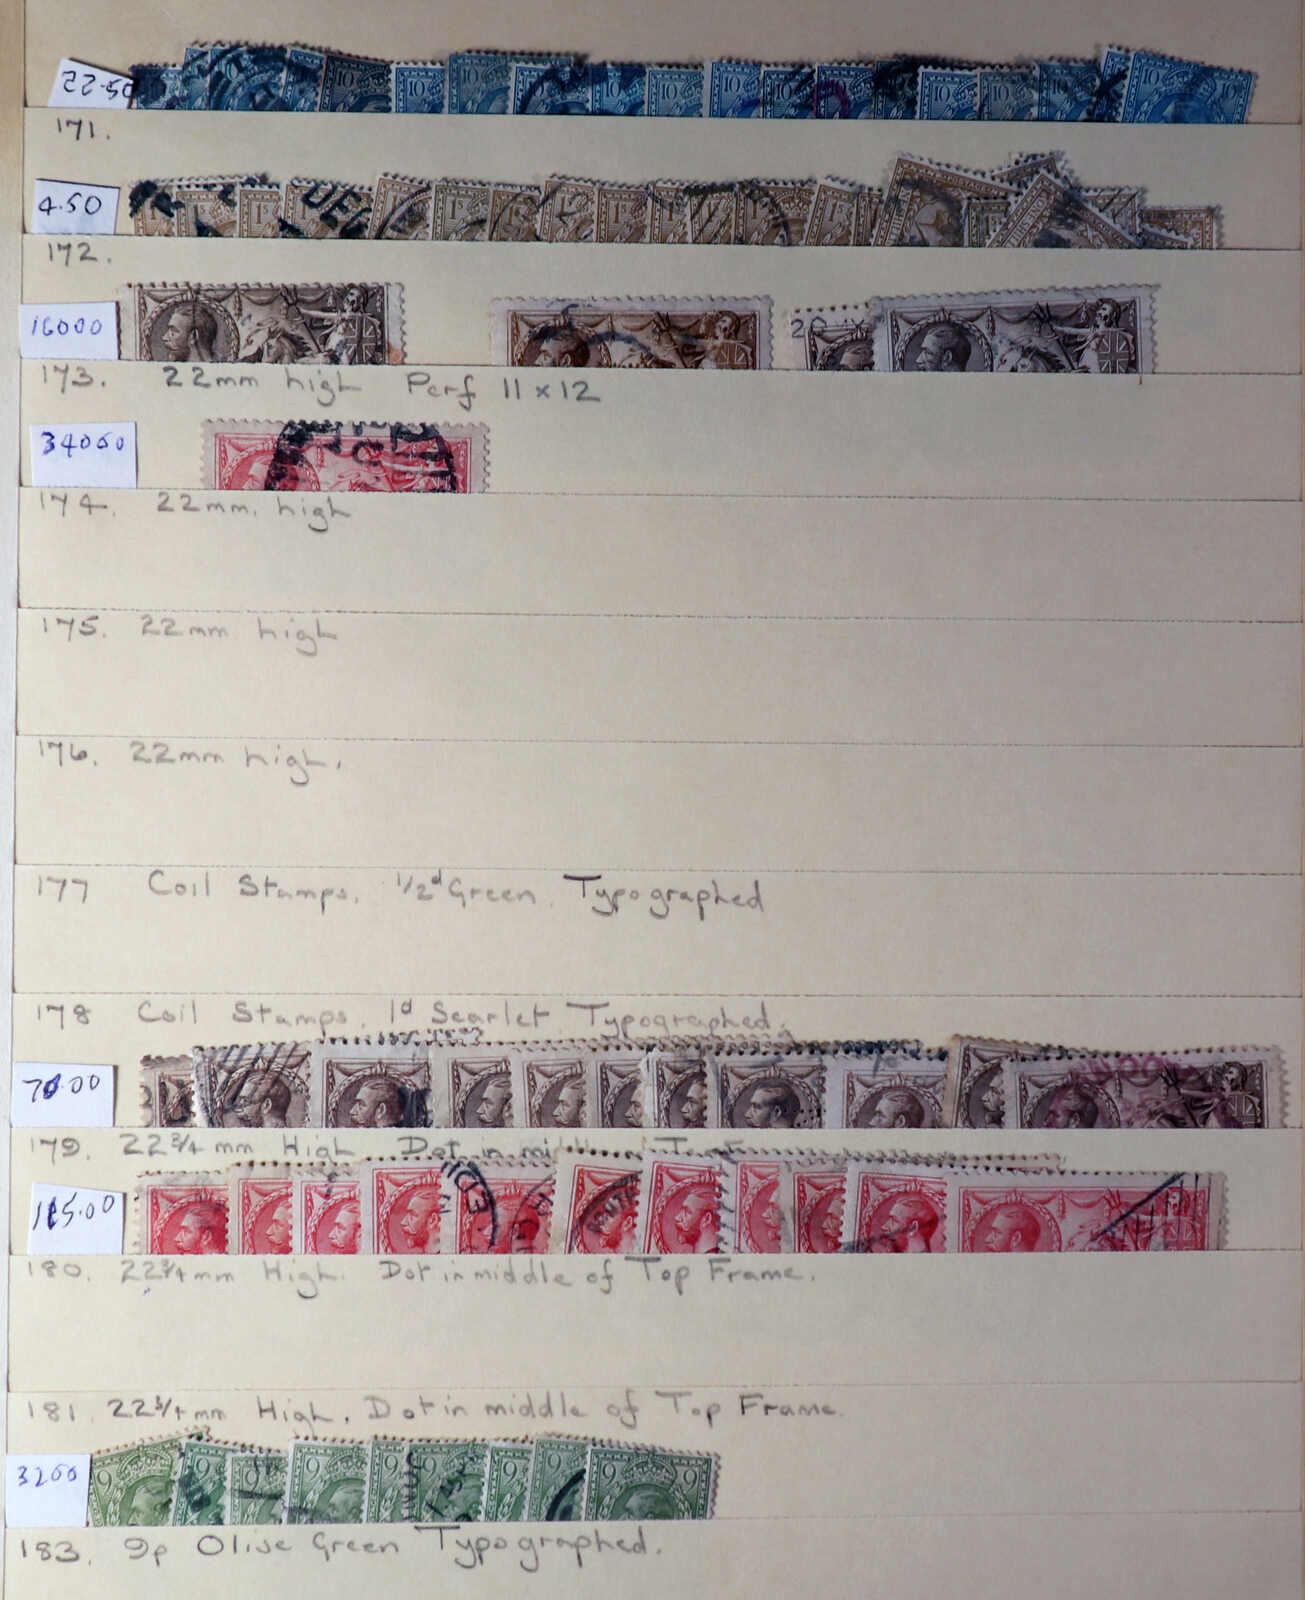 22.50
171.
4.50
172.
16000
173. 22mm high Perf 11 x 12
34000
174. 22mm. high
175. 22mm high
176. 22mm high.
177 Coil Stamps. 1/2d Green. Typographed
178 Coil Stamps. 1d Scarlet Typographed.
70.00
179. 22 3/4 mm High Dot in middle
115.00
180. 22 3/4 mm High. Dot in middle of Top Frame.
181. 22 3/4 mm High. Dot in middle of Top Frame.
3200
183. 9p Olive Green Typographed.